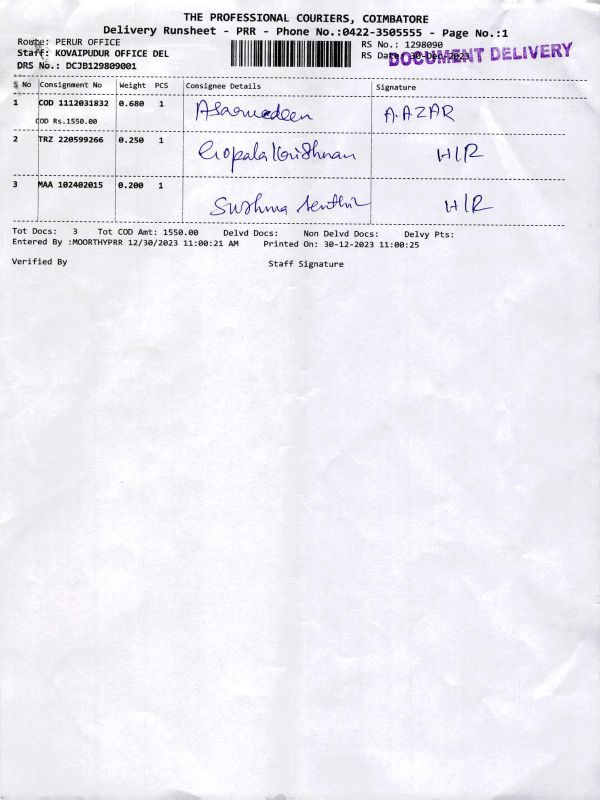 THE PROFESSIONAL COURIERS, COIMBATORE
Delivery Runsheet - PRR - Phone No.:0422-3505555 - Page No.:1
Route: PERUR OFFICE RS No.: 1298090
Staff: KOVAIPUDUR OFFICE DEL RS Date: 30-Dec-2023
DOCUMENT DELIVERY
DRS No.: DCJB129809001
S No Consignment No Weight PCS Consignee Details Signature
1 COD 1112031832 0.680 1 A.AZAR
COD Rs.1550.00
2 TRZ 220599266 0.250 1 Gopalakrishnan H/R
3 MAA 102402015 0.200 1 Sushma Senthil H/R
Tot Docs: 3 Tot COD Amt: 1550.00 Delvd Docs: Non Delvd Docs: Delvy Pts:
Entered By :MOORTHYPRR 12/30/2023 11:00:21 AM Printed On: 30-12-2023 11:00:25
Verified By Staff Signature